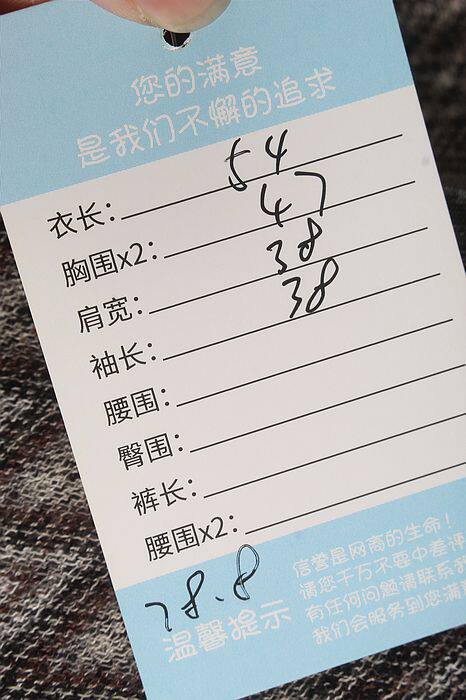 您的满意
是我们不懈的追求
衣长： 54
胸围x2： 47
肩宽： 38
袖长： 38
腰围：
臀围：
裤长：
腰围x2：
78.8
温馨提示
信誉是网商的生命！
请您千万不要中差评
有任何问题请联系我
我们会服务到您满